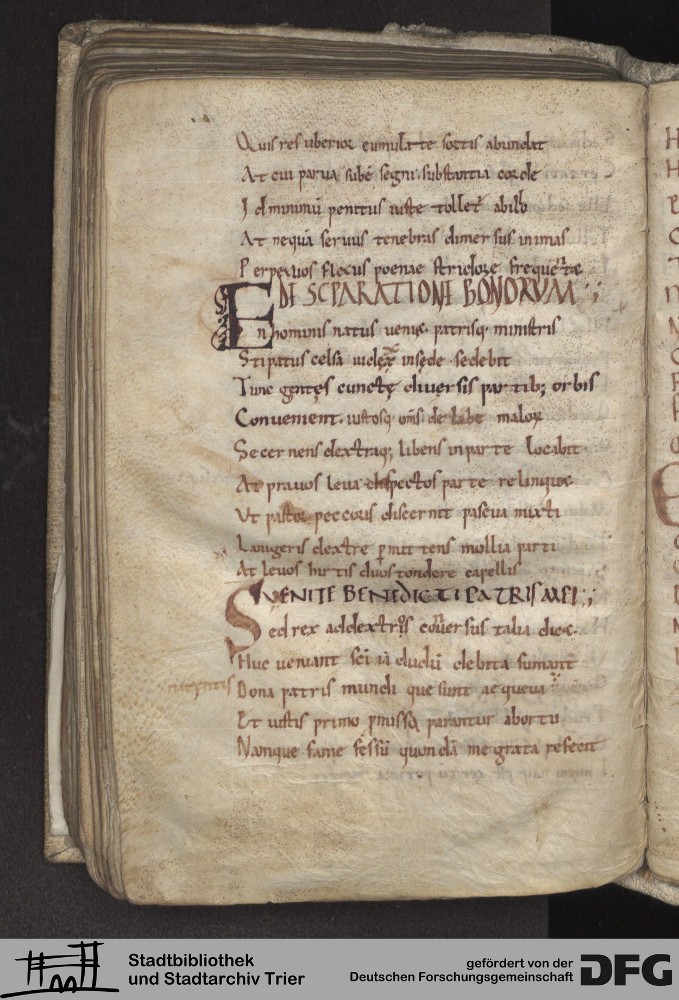 Quis res uberior cumulate sortis abundat
At cui parua subē segni substantia corde
Id minimū penitus iuste tollet ab illo
At nequā seruus tenebras dimersus in imas
Perpetuos flecus poenae stridore
DE SEPARATIONE BONORUM
En hominis natus veniet patrisq; ministris
Stipatus celsa iudex in sede sedebit
Tunc gentęs cunctę diuersis partib; orbis
Conuenient. iustosq; de labe malorꝝ
Secernens dextraq; libens in parte locabit
At prauos leua dispectos parte relinquet
Ut pastor peccoris discernit pascua mixti
Lanigeris dextre pmittens mollia parti
At leuos hirtis duos tondere capellis
VENITE BENEDICTI PATRIS MEI
Sed rex ad dextros cōuersus talia dicet
Huc veniant sc̄i iā dudū debita sumant
Dona patris mundi que sunt aequeua
Et iustis primo pmissa parantur ab ortu
Namque fame fessū quondā me grata refecit
Stadtbibliothek
und Stadtarchiv Trier
gefördert von der
Deutschen Forschungsgemeinschaft
DFG